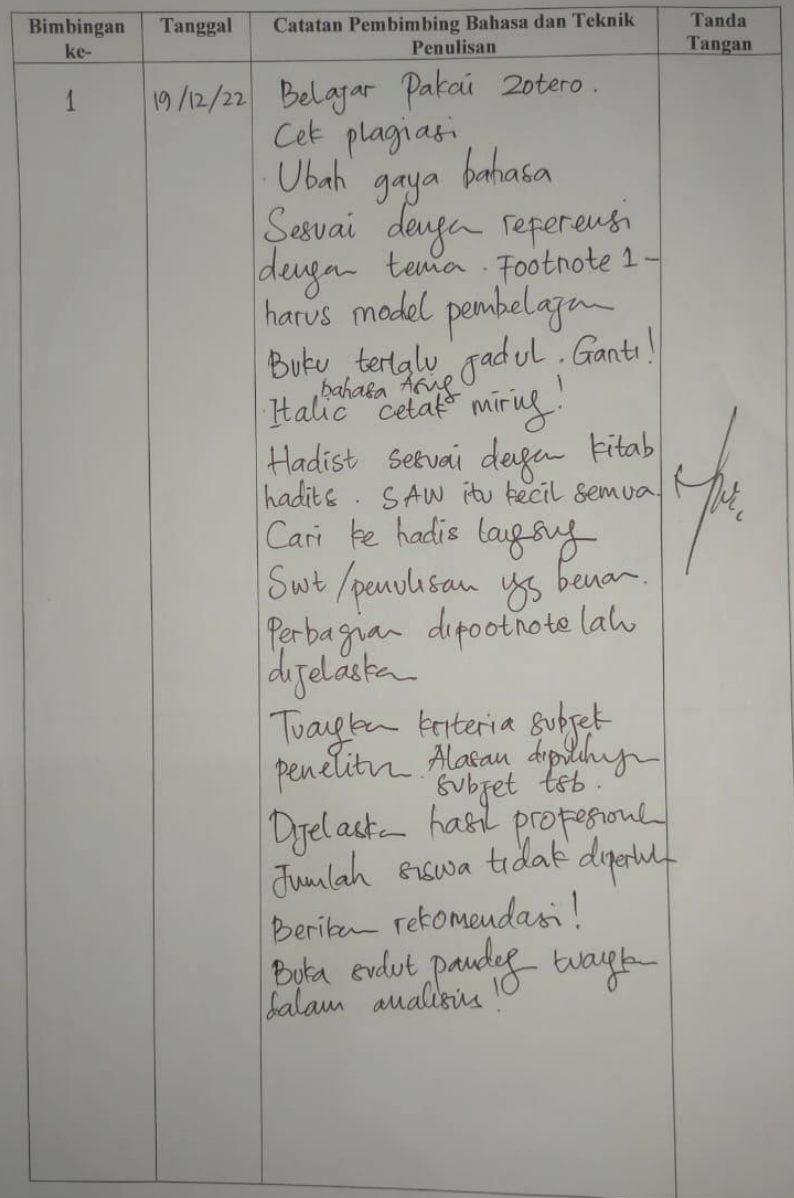 Bimbingan ke-
Tanggal
Catatan Pembimbing Bahasa dan Teknik Penulisan
Tanda Tangan
1
19/12/22
Belajar Pakai Zotero.
Cek plagiasi
Ubah gaya bahasa
Sesuai dengan referensi
dengan tema. Footnote 1-
harus model pembelajaran
Buku terlalu jadul. Ganti!
bahasa Asing
Italic cetak miring!
Hadist sesuai dengan kitab
hadits. SAW itu kecil semua.
Cari ke hadis langsung
Swt/penulisan yg benar.
Perbagian difootnote lah
dijelaskan
Tuangkan kriteria subjek
penelitian. Alasan dipilihnya
subjet tsb.
Dijelaskan hasil profesional
Jumlah siswa tidak diperlukan
Berikan rekomendasi!
Buka sudut pandang tuangkan
dalam analisis!